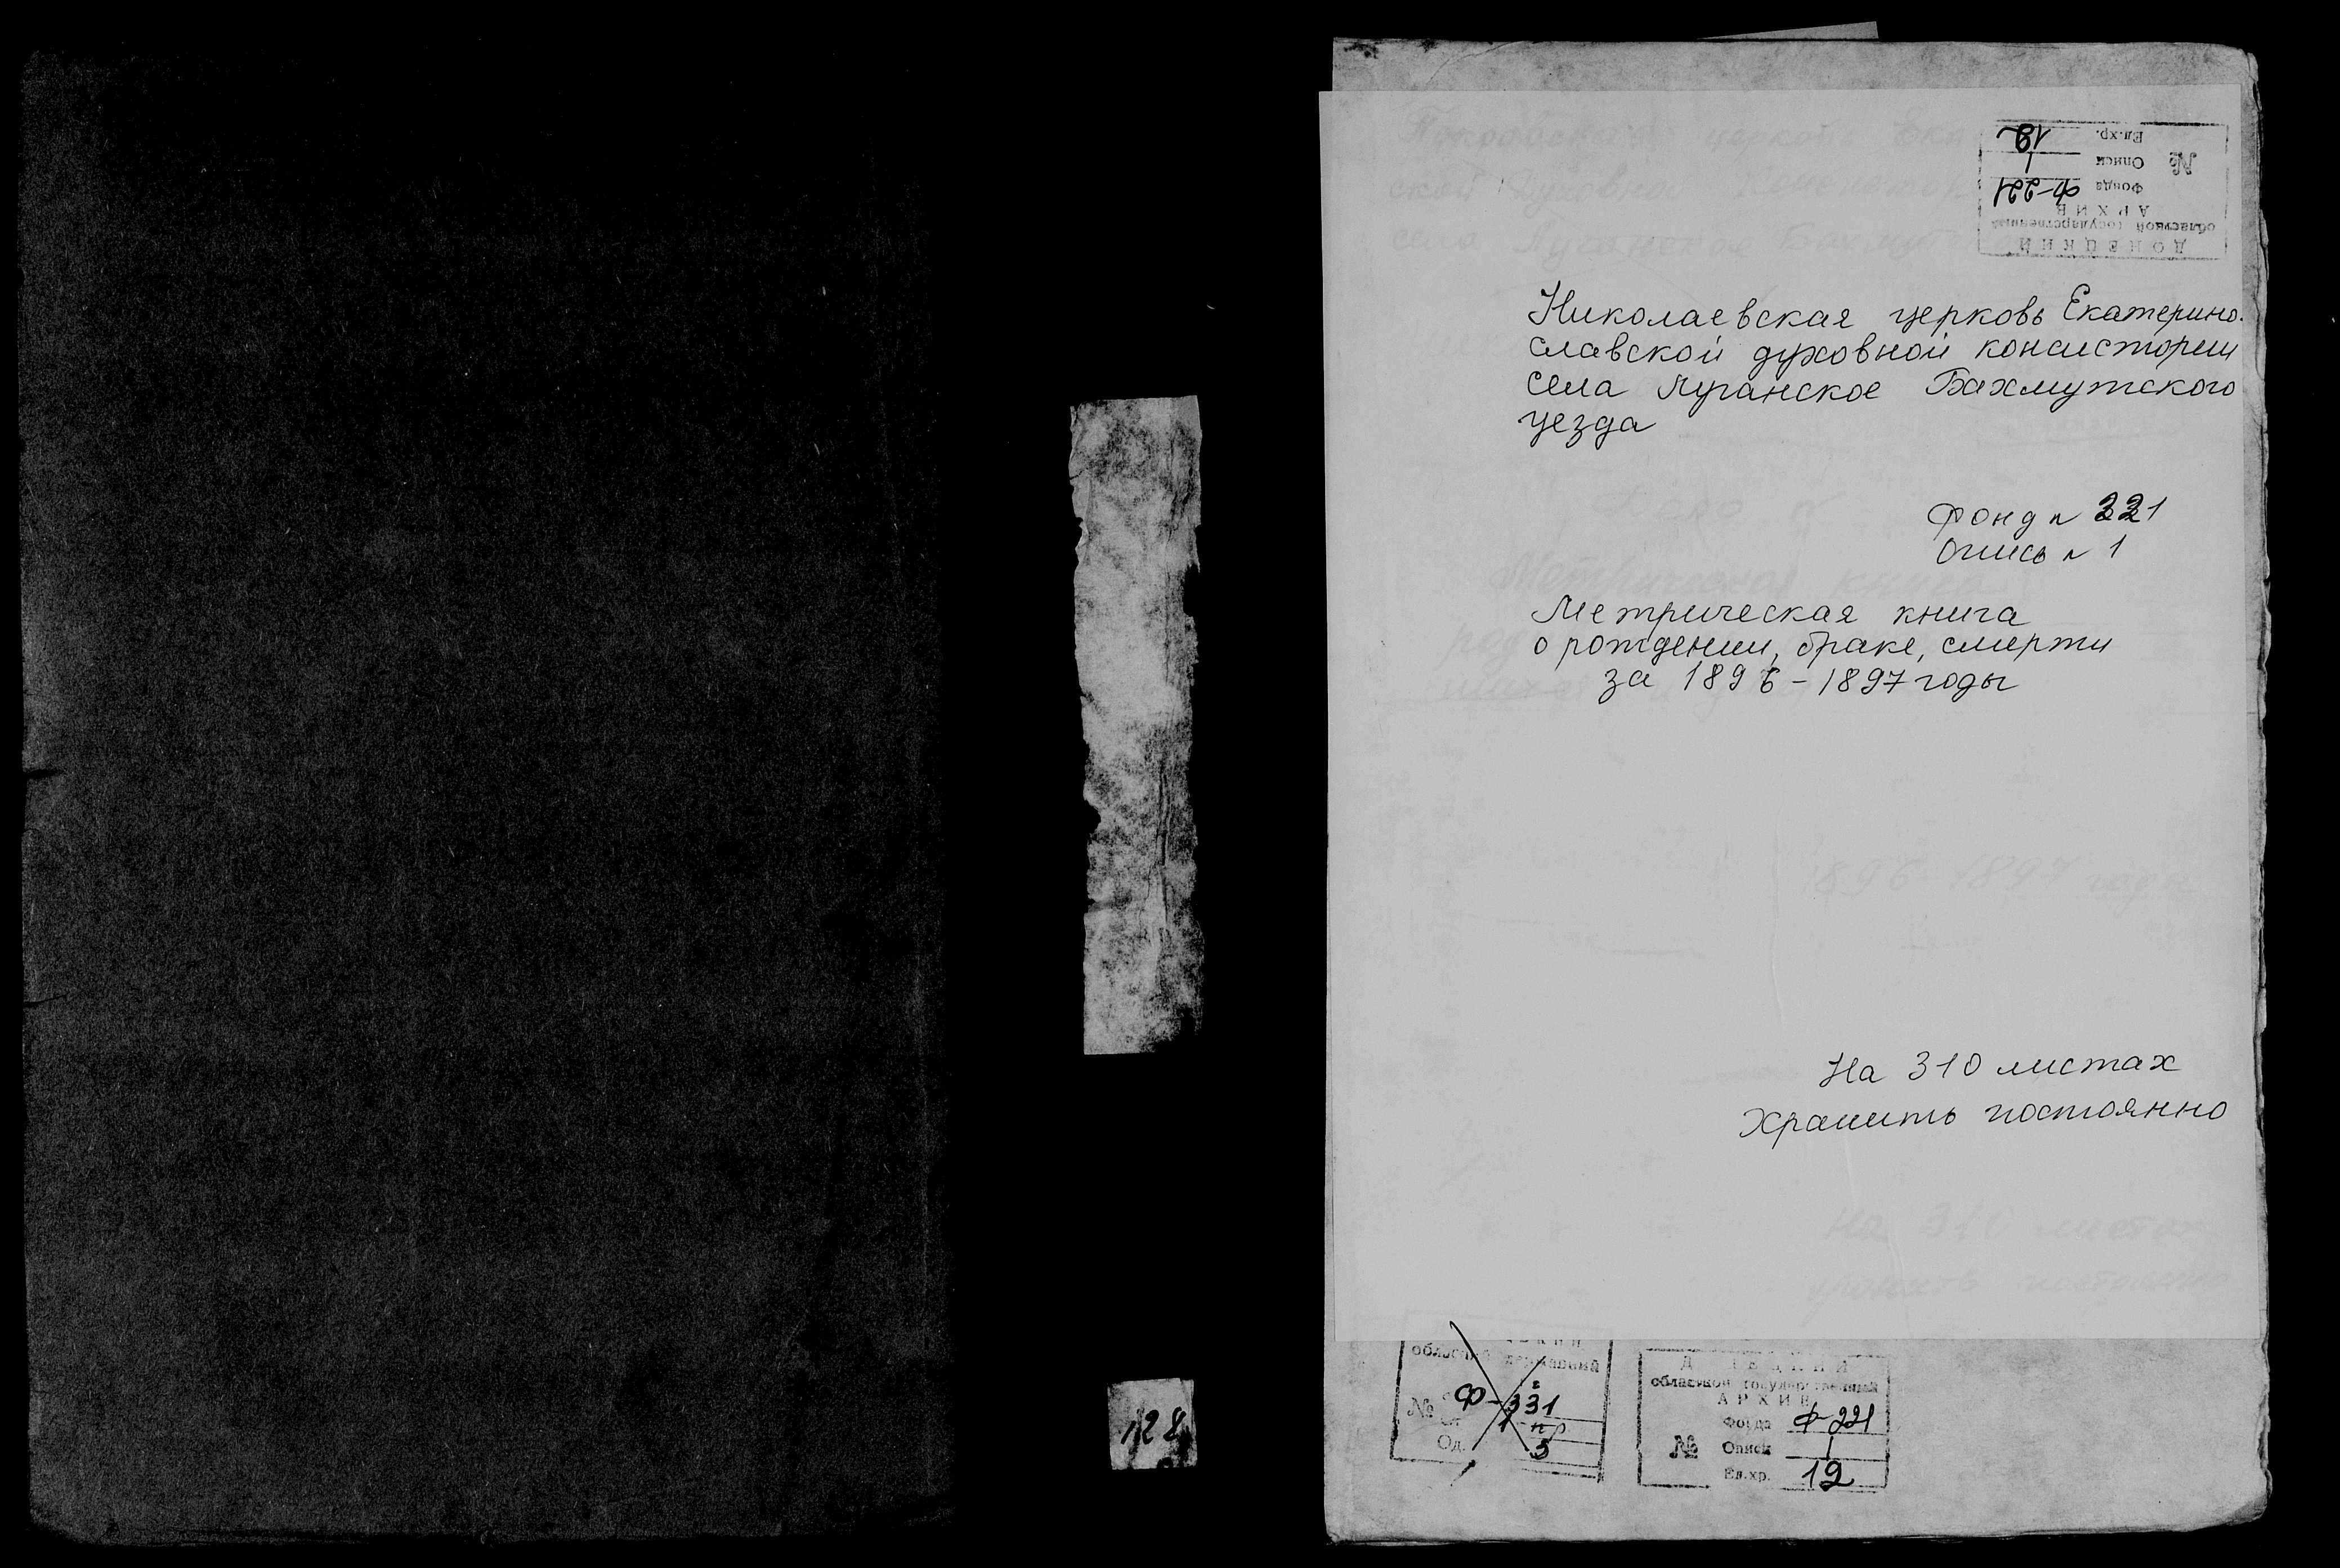 ДОНЕЦКИЙ
областной государственный
АРХИВ
№ Фонда Ф-221
Описи 1
Ед.хр. 12
Николаевская церковь Екатерино-
славской духовной консистории
села Луганское Бахмутского
уезда
Фонд № 221
Опись № 1
Метрическая книга
о рождении, браке, смерти
за 1896-1897 годы
1896-1897 годы
На 310 листах
Хранить постоянно
На 310 листах
хранить постоянно
128
обласний державний
№ Ф-331
1 пр
Од. 5
областной государственный
АРХИВ
Фонда Ф-221
№ Описи 1
Ед.хр. 12